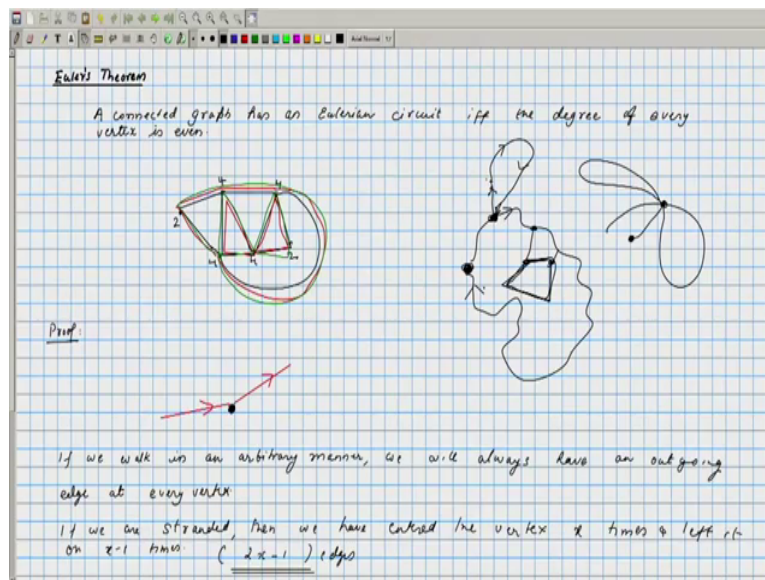 Euler's Theorem
A connected graph has an Eulerian circuit iff the degree of every
vertex is even.
4
4
2
4
4
2
Proof:
If we walk in an arbitrary manner, we will always have an outgoing
edge at every vertex.
If we are stranded, then we have entered the vertex x times & left it
on x-1 times. (2x-1) edges